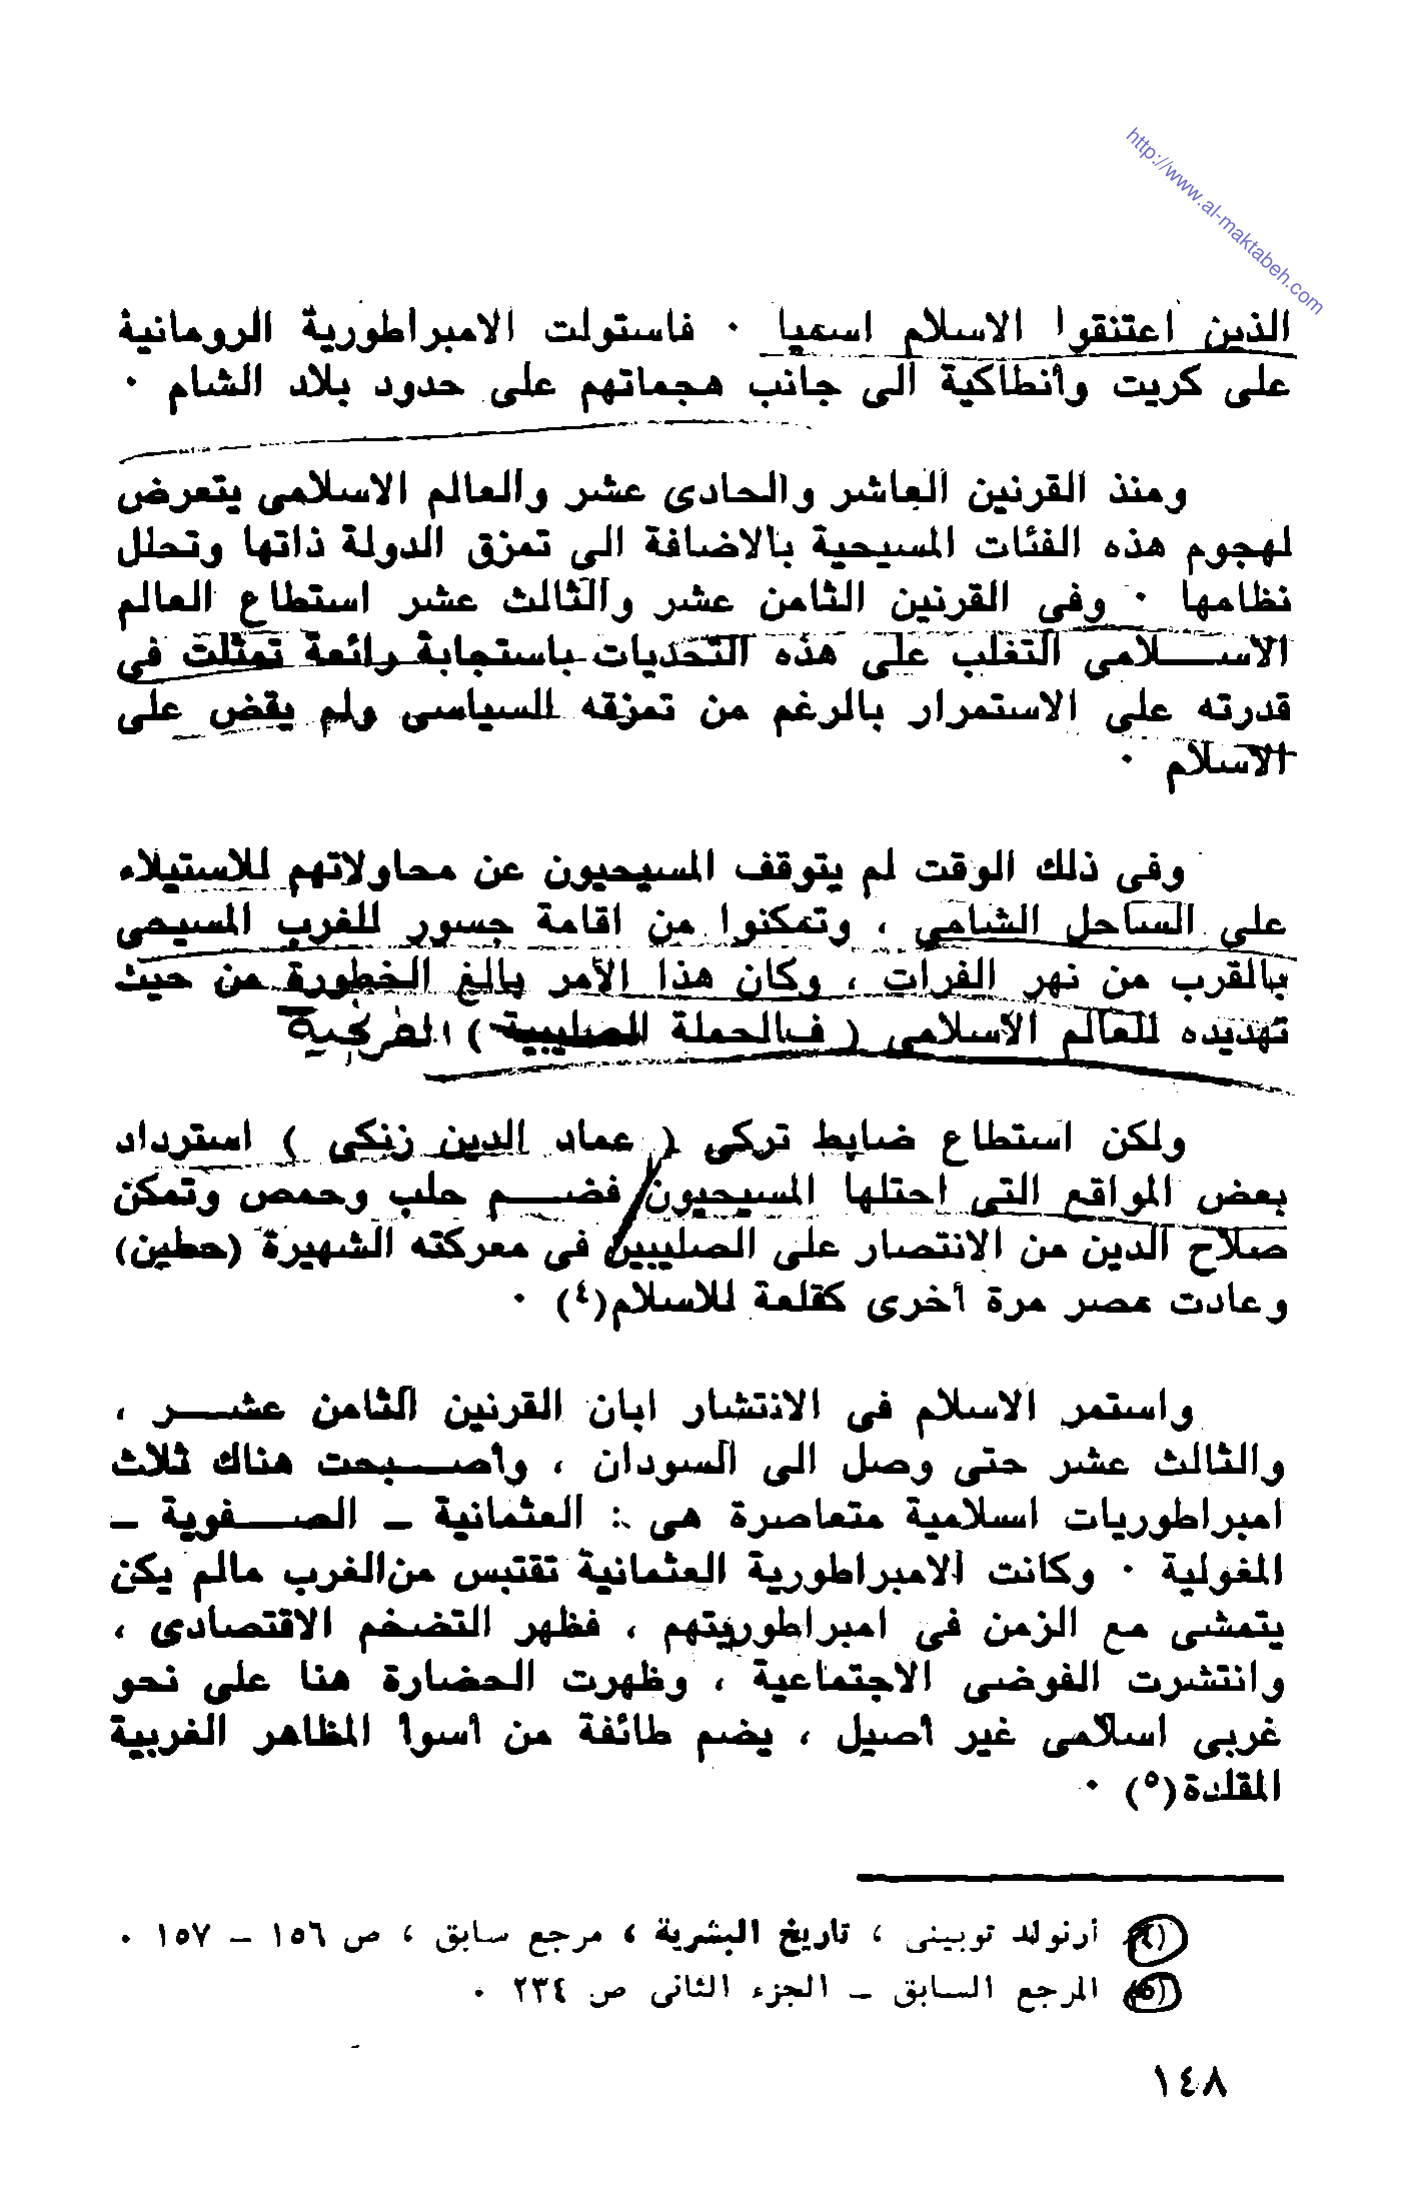 http://www.al-maktabeh.com
الذين اعتنقوا الاسلام اسميا . فاستولت الامبراطورية الرومانية
على كريت وأنطاكية الى جانب هجماتهم على حدود بلاد الشام .
ومنذ القرنين العاشر والحادى عشر والعالم الاسلامى يتعرض
لهجوم هذه الفئات المسيحية بالاضافة الى تمزق الدولة ذاتها وتحلل
نظامها . وفى القرنين الثامن عشر والثالث عشر استطاع العالم
الاســلامى التغلب على هذه التحديات باستجابة رائعة تمثلت فى
قدرته على الاستمرار بالرغم من تمزقه السياسى ولم يقض على
الاسلام .
وفى ذلك الوقت لم يتوقف المسيحيون عن محاولاتهم للاستيلاء
على الساحل الشامى ، وتمكنوا من اقامة جسور للغرب المسيحى
بالقرب من نهر الفرات ، وكان هذا الأمر بالغ الخطورة من حيث
تهديده للعالم الاسلامى ( فالحملة الصليبية ) الفرنجية
ولكن استطاع ضابط تركى ( عماد الدين زنكى ) استرداد
بعض المواقع التى احتلها المسيحيون فضـم حلب وحمص وتمكن
صلاح الدين من الانتصار على الصليبيين فى معركته الشهيرة (حطين)
وعادت مصر مرة أخرى كقلعة للاسلام(٤) .
واستمر الاسلام فى الانتشار ابان القرنين الثامن عشــر ،
والثالث عشر حتى وصل الى السودان ، وأصــبحت هناك ثلاث
امبراطوريات اسلامية متعاصرة هى : العثمانية – الصــفوية –
المغولية . وكانت الامبراطورية العثمانية تقتبس من الغرب مالم يكن
يتمشى مع الزمن فى امبراطوريتهم ، فظهر التضخم الاقتصادى ،
وانتشرت الفوضى الاجتماعية ، وظهرت الحضارة هنا على نحو
غربى اسلامى غير أصيل ، يضم طائفة من أسوأ المظاهر الغربية
المقلدة(٥) .
(٤) أرنولد توبينى ، تاريخ البشرية ، مرجع سابق ، ص ١٥٦ – ١٥٧ .
(٥) المرجع السابق – الجزء الثانى ص ٢٣٤ .
١٤٨